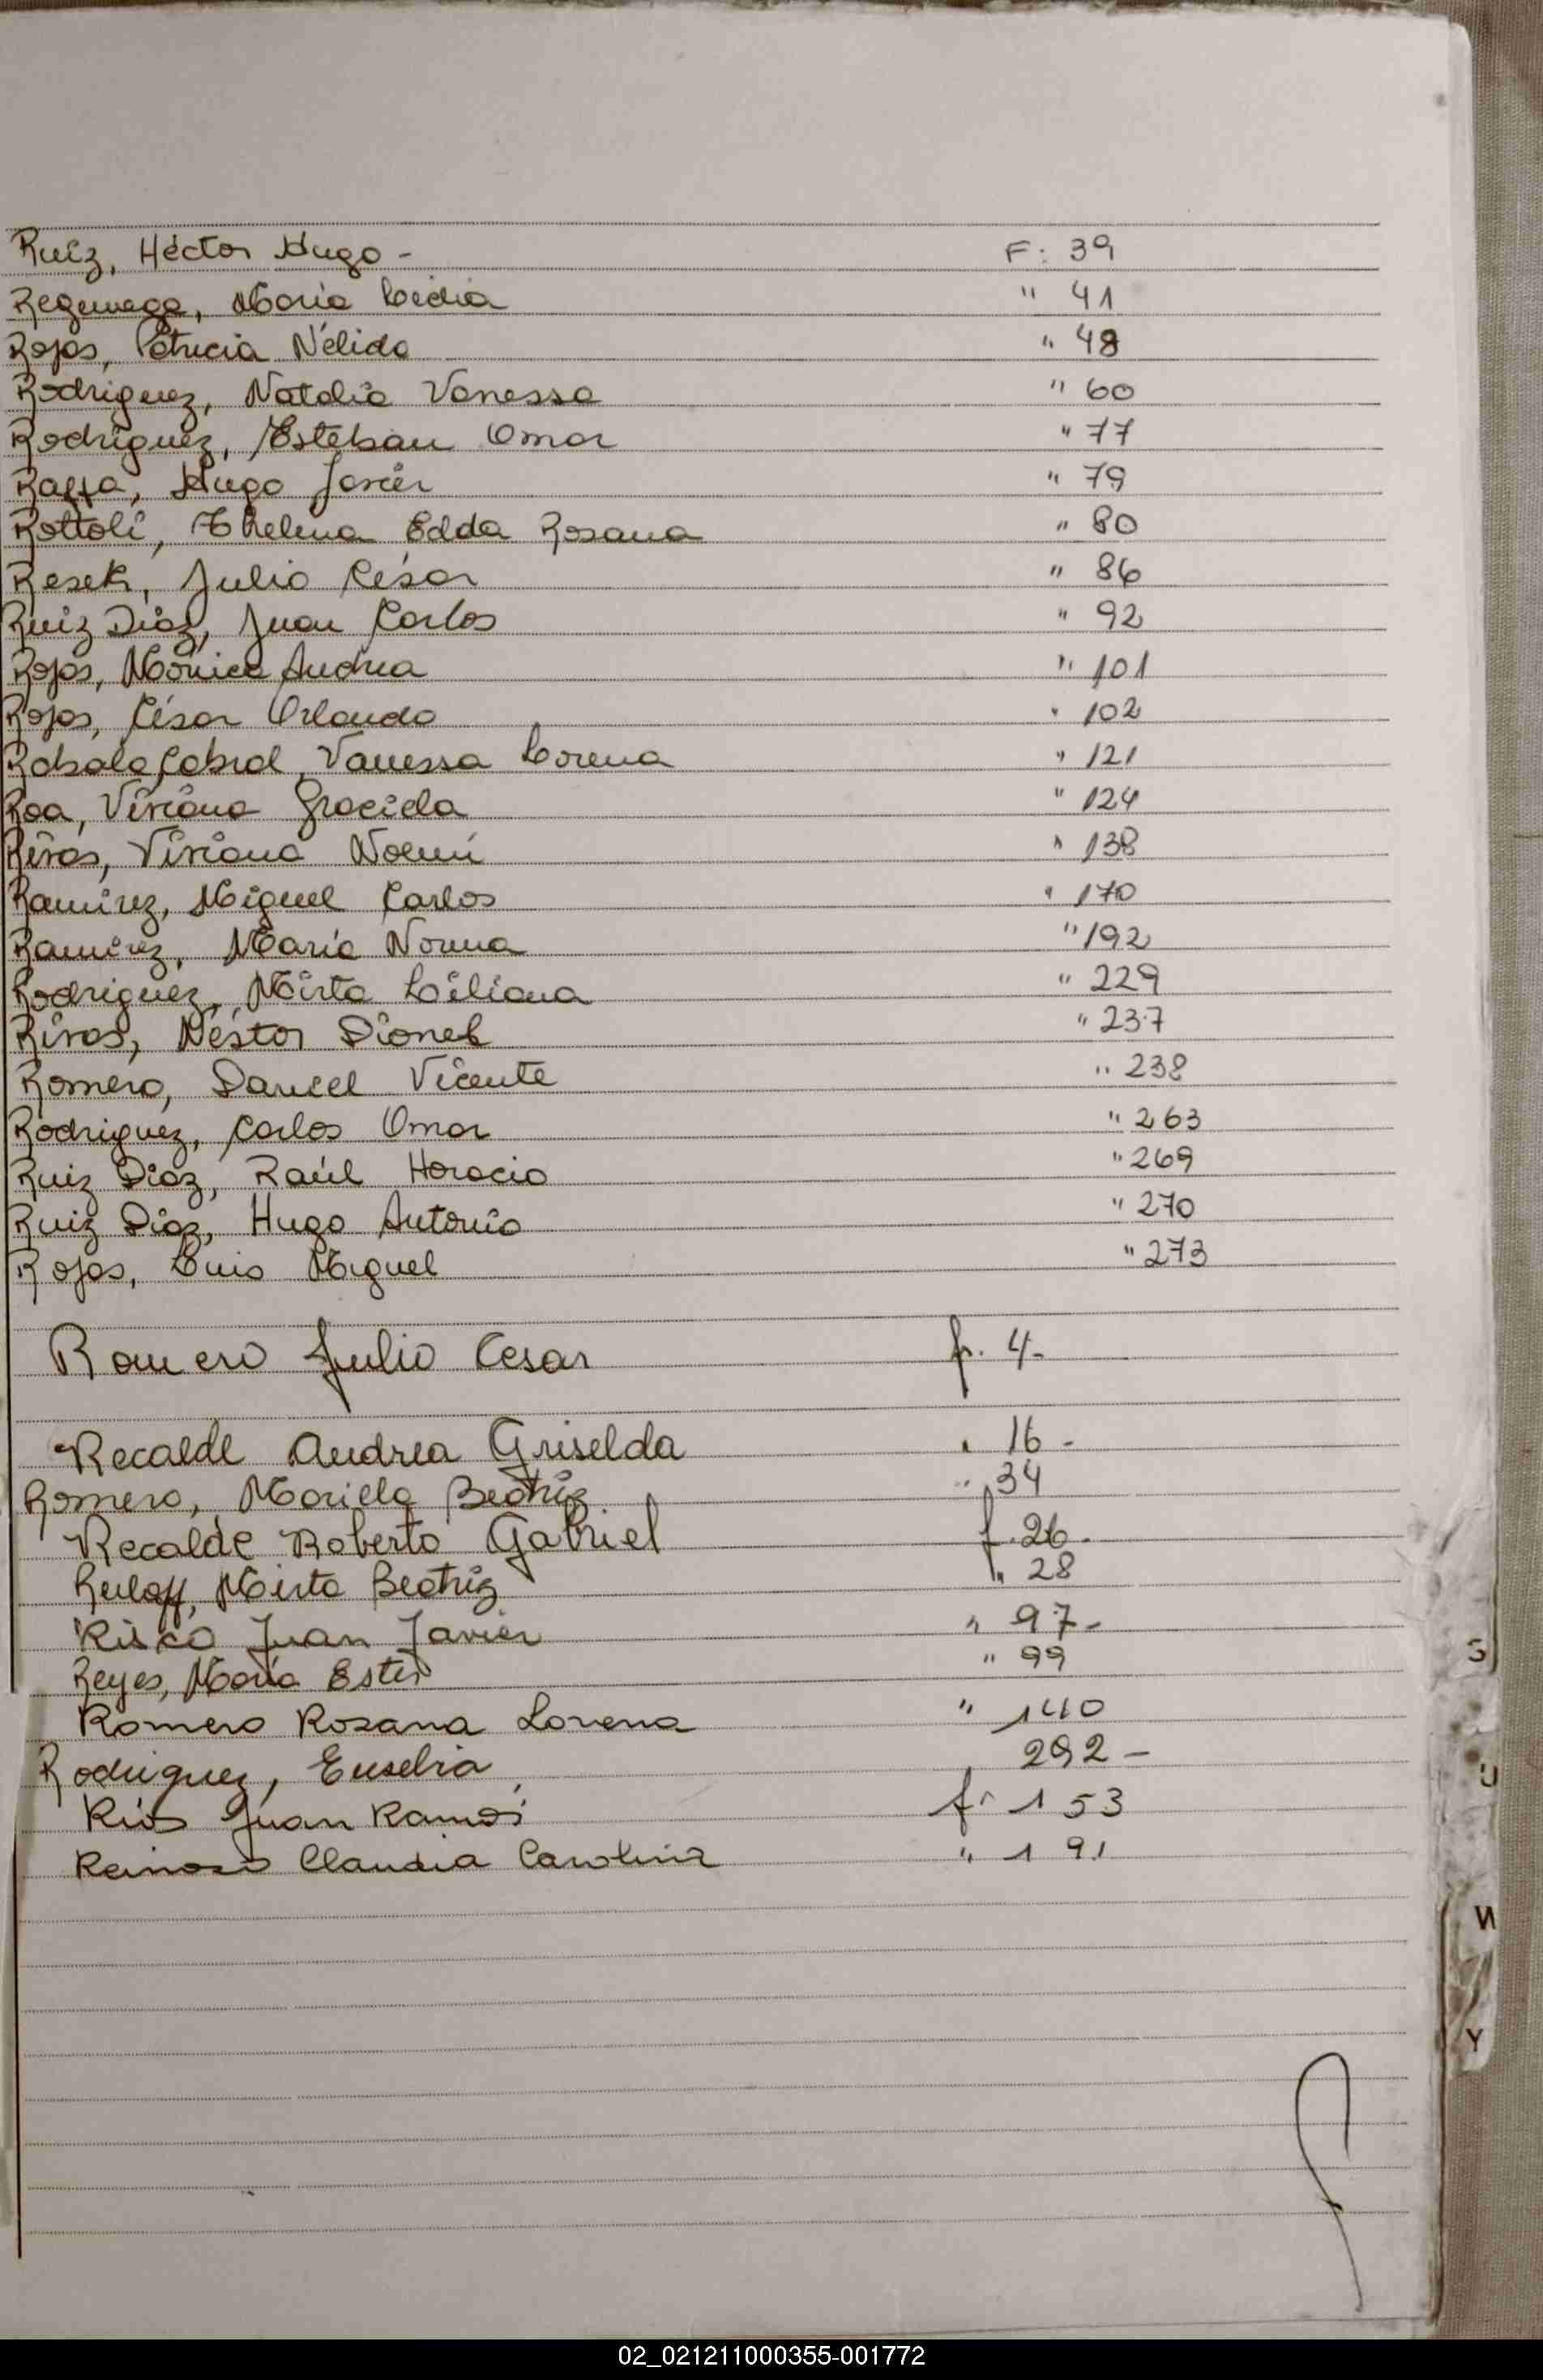 Ruiz, Héctor Hugo - F: 39
María Lidia " 41
Rojas, Patricia Nélida " 48
Rodriguez, Natalia Vanessa " 60
Rodriguez, Esteban Omar " 77
Raffa, Hugo Javier " 79
Rottoli, Thelma Edda Rosana " 80
Resek, Julio César " 86
Ruiz Diaz, Juan Carlos " 92
Rojas, Mónica Andrea " 101
Rojas, César Orlando " 102
Robalo Cabral, Vanessa Lorena " 121
Roa, Viviana Graciela " 124
Rivas, Viviana Noemí " 138
Ramirez, Miguel Carlos " 170
Ramirez, María Norma " 192
Rodriguez, Mirta Liliana " 229
Rivas, Néstor Dionel " 237
Romero, Daniel Vicente " 238
Rodriguez, Carlos Omar " 263
Ruiz Diaz, Raúl Horacio " 269
Ruiz Diaz, Hugo Antonio " 270
Rojas, Luis Miguel " 273
Romero Julio Cesar f. 4-
Recalde Andrea Griselda " 16 -
Romero, Mariela Beatriz " 34
Recalde Roberto Gabriel f. 26-
Mirta Beatriz " 28
Risko Juan Javier " 97-
Reyes, María Ester " 99
Romero Rosana Lorena " 140
Rodriguez, Eusebia 292 -
Ríos Juan Ramón f. 153
Reinoso Claudia Carolina " 191
S
U
W
Y
02_021211000355-001772